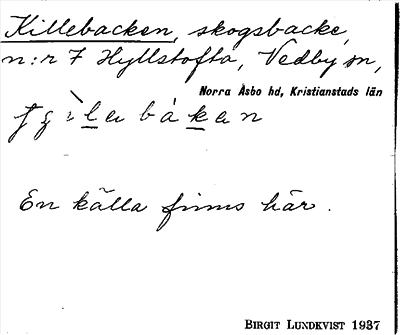 Killebacken, skogsbacke,
n:r 7 Hyllstofta, Vedby sn,
Norra Åsbo hd, Kristianstads län
En källa finns här.
BIRGIT LUNDKVIST 1937